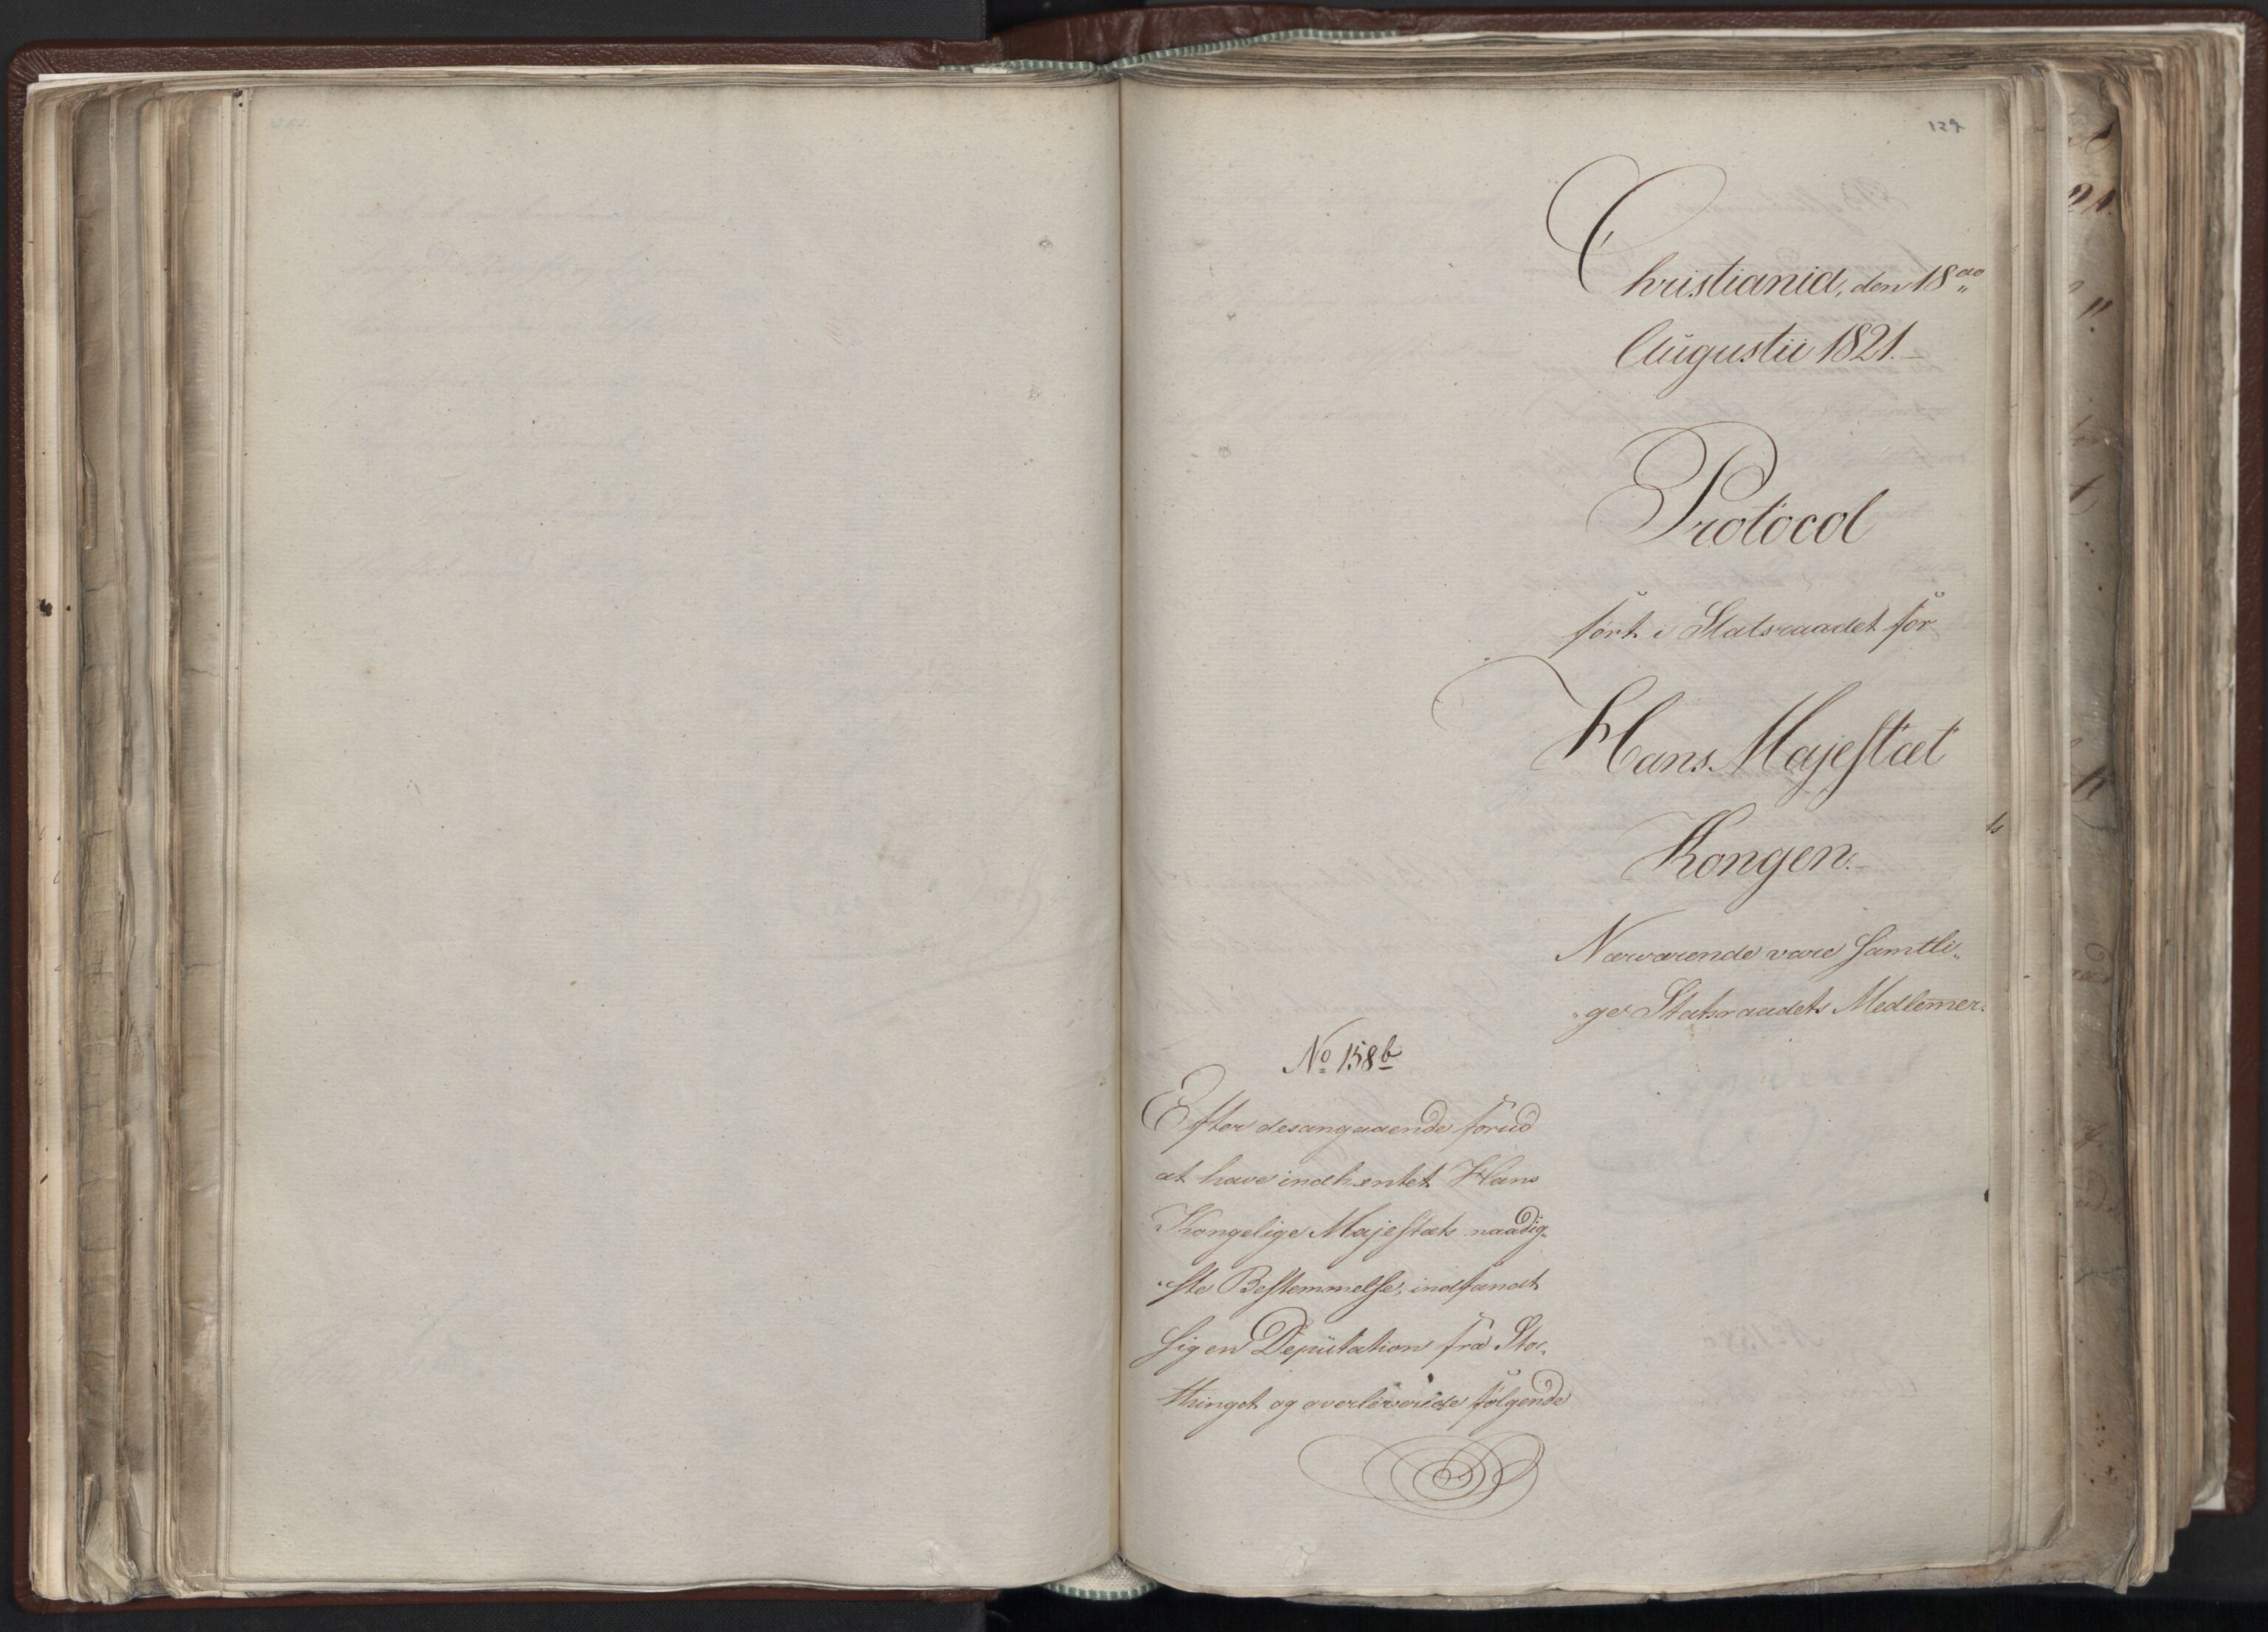 139
Christiania, den 18de
Augustii 1821.
Protocol
ført i Statsraadet for
Hans Majestæt
Kongen.
Nærværende vare samtli„
„ge Statsraadets Medlem̄er.
No 158 b
Efter desangaaende forud
at have indhentet Hans
Kongelige Majestæts naadig„
„ste Bestemmelse, indfandt
sig en Deputation fra Stor„
thinget og overleverede følgende